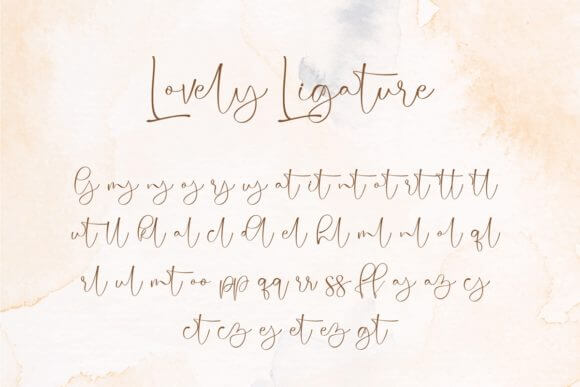 Lovely Ligature
ly my ny oy ry uy at it nt ot rt tt tl
ut ll bl al cl dl el hl ml nl ol ql
rl ul mt oo pp qq rr ss ff ay az cy
ct cz ey et ez gt